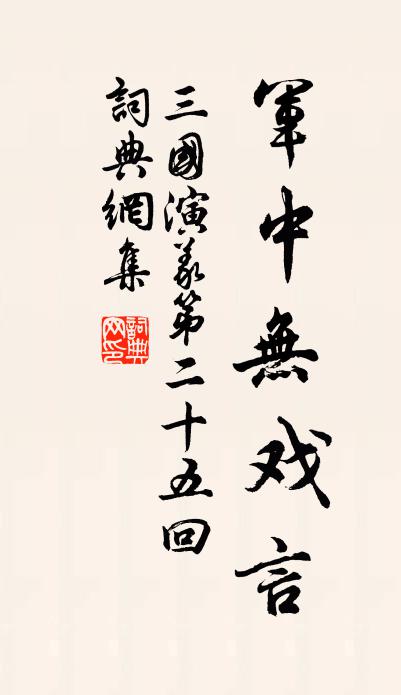 軍中無戏言
三國演义第二十五回
詞典網集
詞典
网印